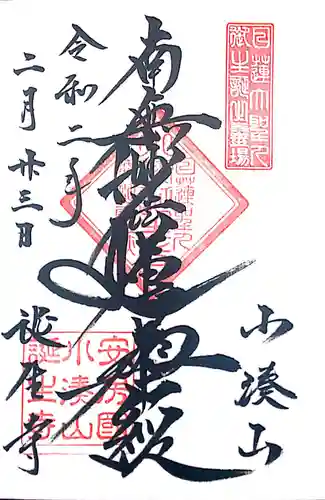 日蓮大聖人
御生誕之霊場
小湊山
南無妙法蓮華経
令和二年
二月廿三日
誕生寺
安房国
小湊山
誕生寺